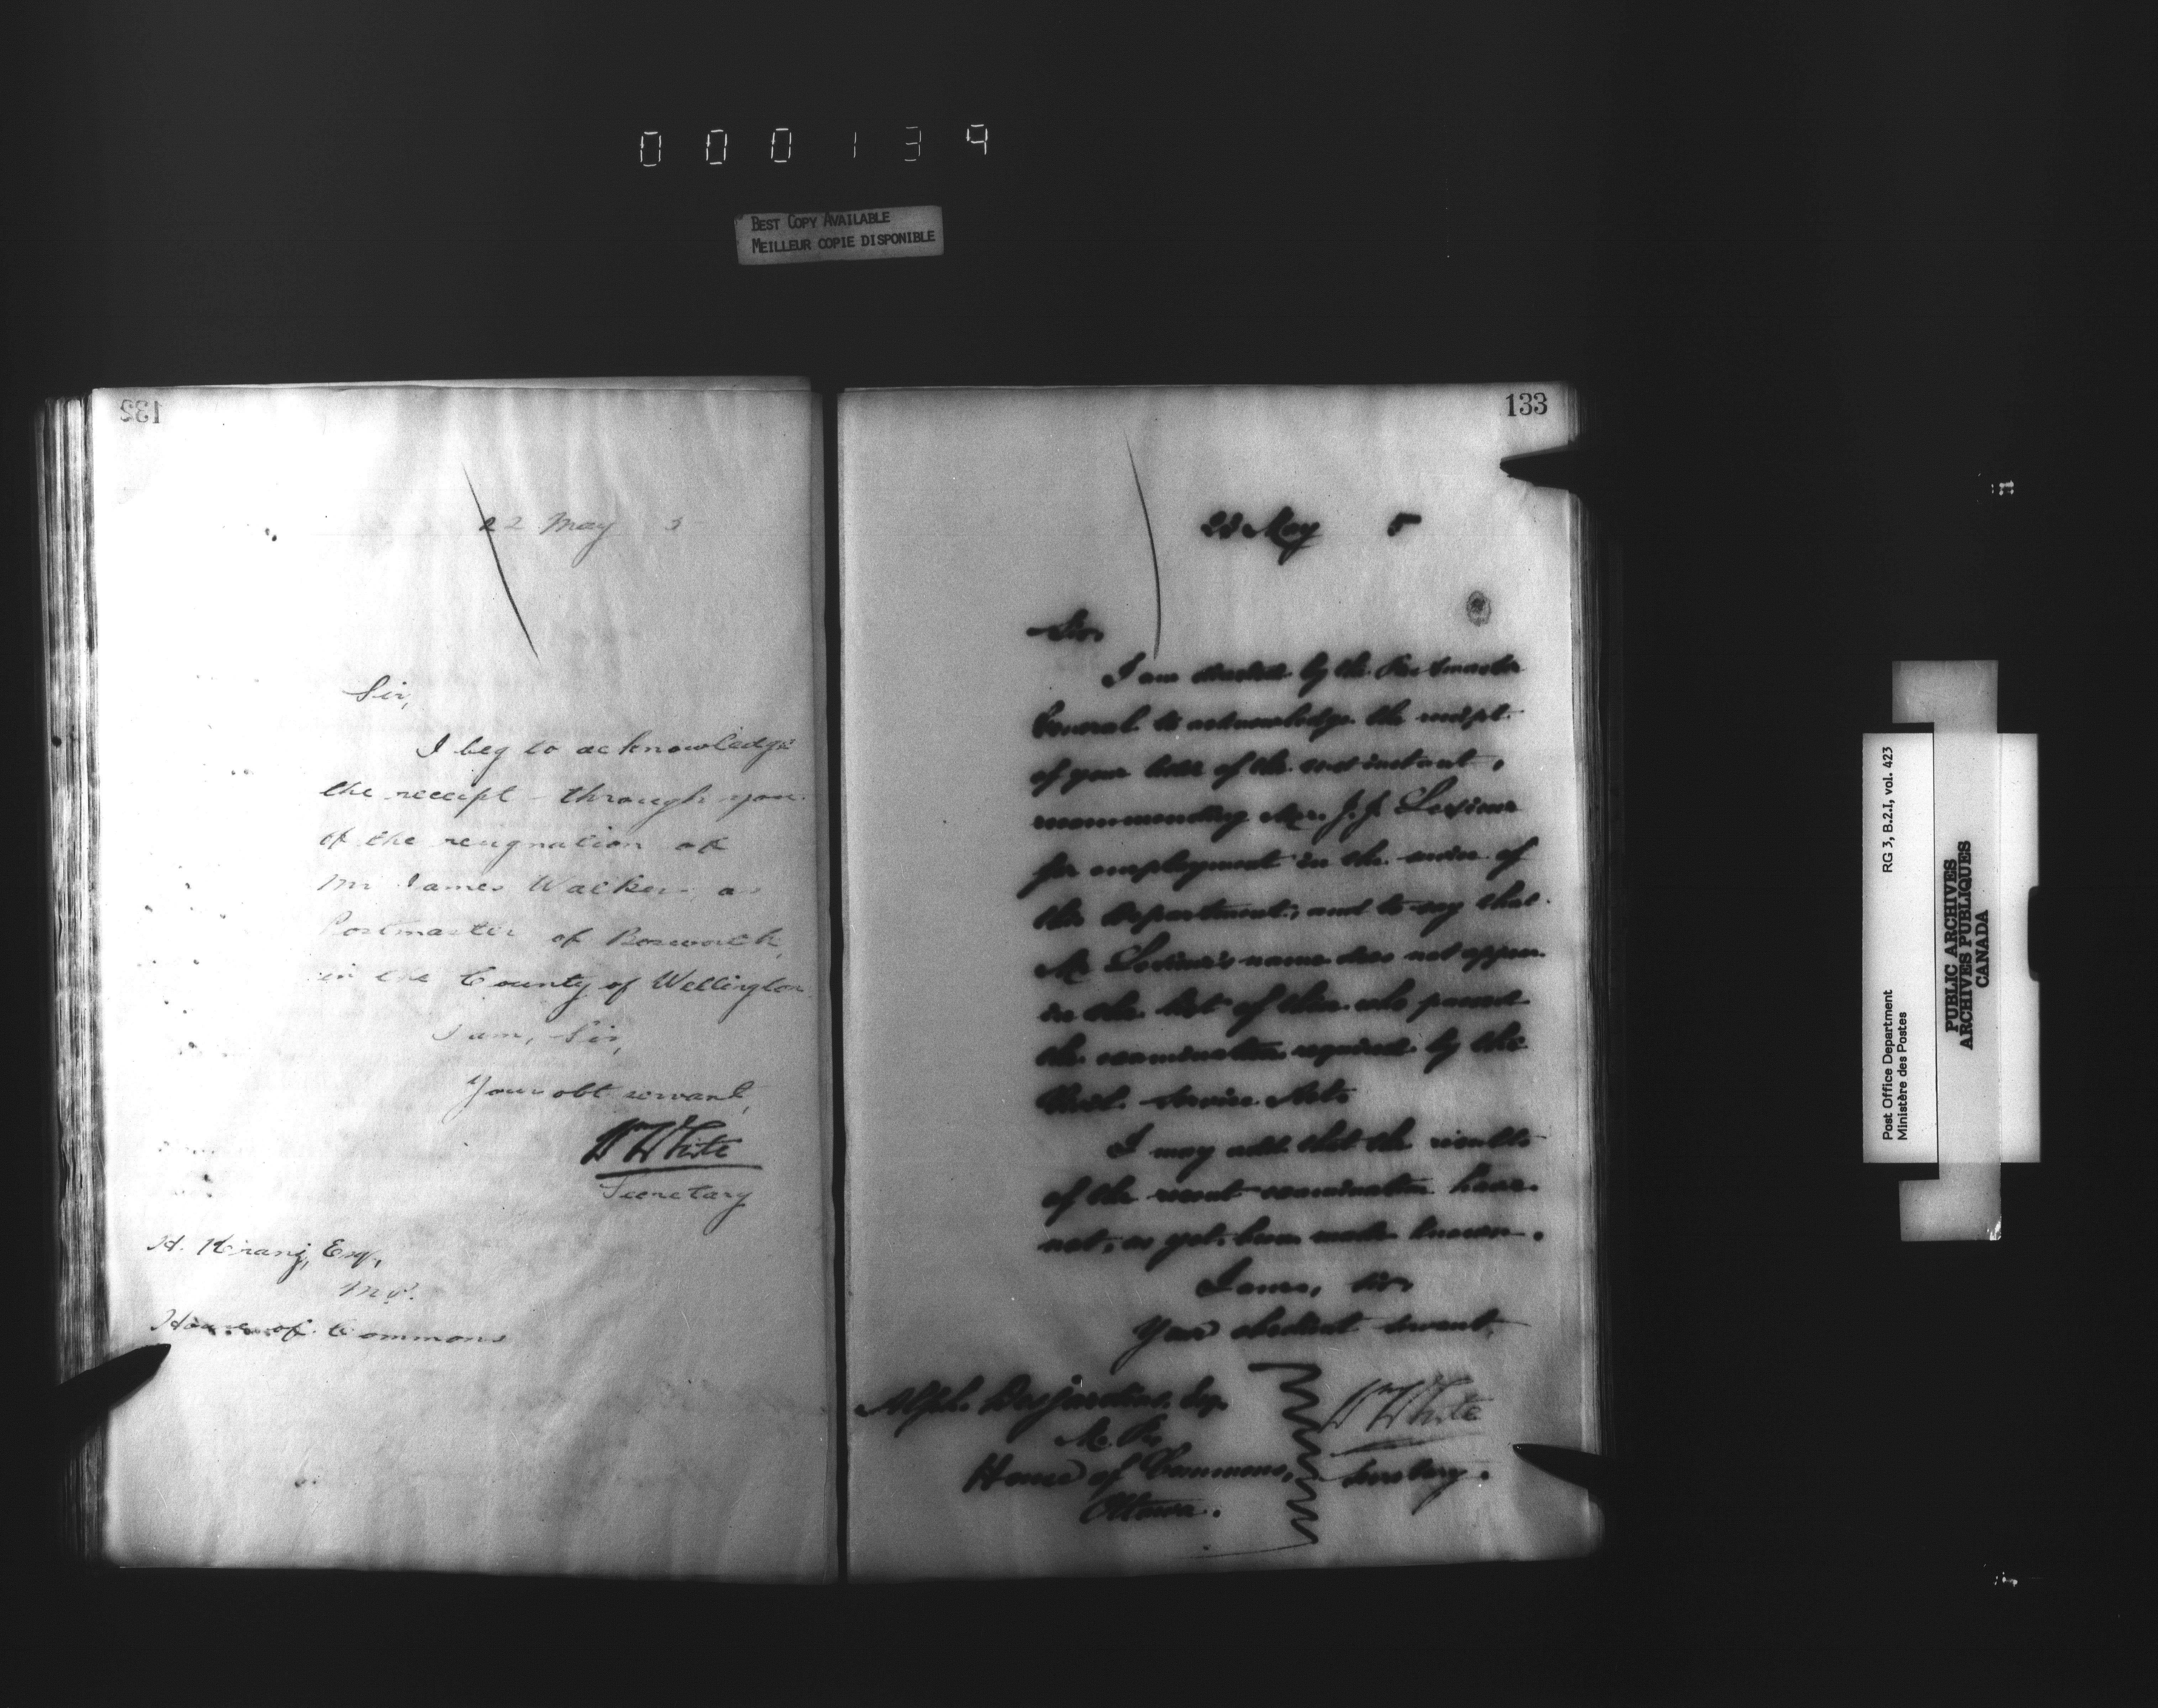 000139
BEST COPY AVAILABLE
MEILLEUR COPIE DISPONIBLE
132
22 May 5
Sir,
I beg to acknowledge
the receipt through you
of the resignation of
Mr James Walker as
Postmaster of Bosworth
in the County of Wellington
I am, Sir,
Your obt servant,
Wm White
Secretary
H. Kranz, Esq,
M.P.
House of Commons
133
May 5
Sir,
I am directed by the Postmaster
General to acknowledge the receipt
of your letter of the instant,
recommending Mr. J. J.
for employment in the service of
this Department, and to say that
Mr name does not appear
in the list of those who passed
the examination required by the
Civil Service Act.
I may add that the results
of the recent examination have
not, as yet, been made known.
I am, Sir,
Your obedient servant,
Wm White
Secretary.
Alph. Desjardins, Esq.
M.P.
House of Commons,
Ottawa.
Post Office Department
Ministère des Postes
RG 3, B.2.I, vol. 423
PUBLIC ARCHIVES
ARCHIVES PUBLIQUES
CANADA